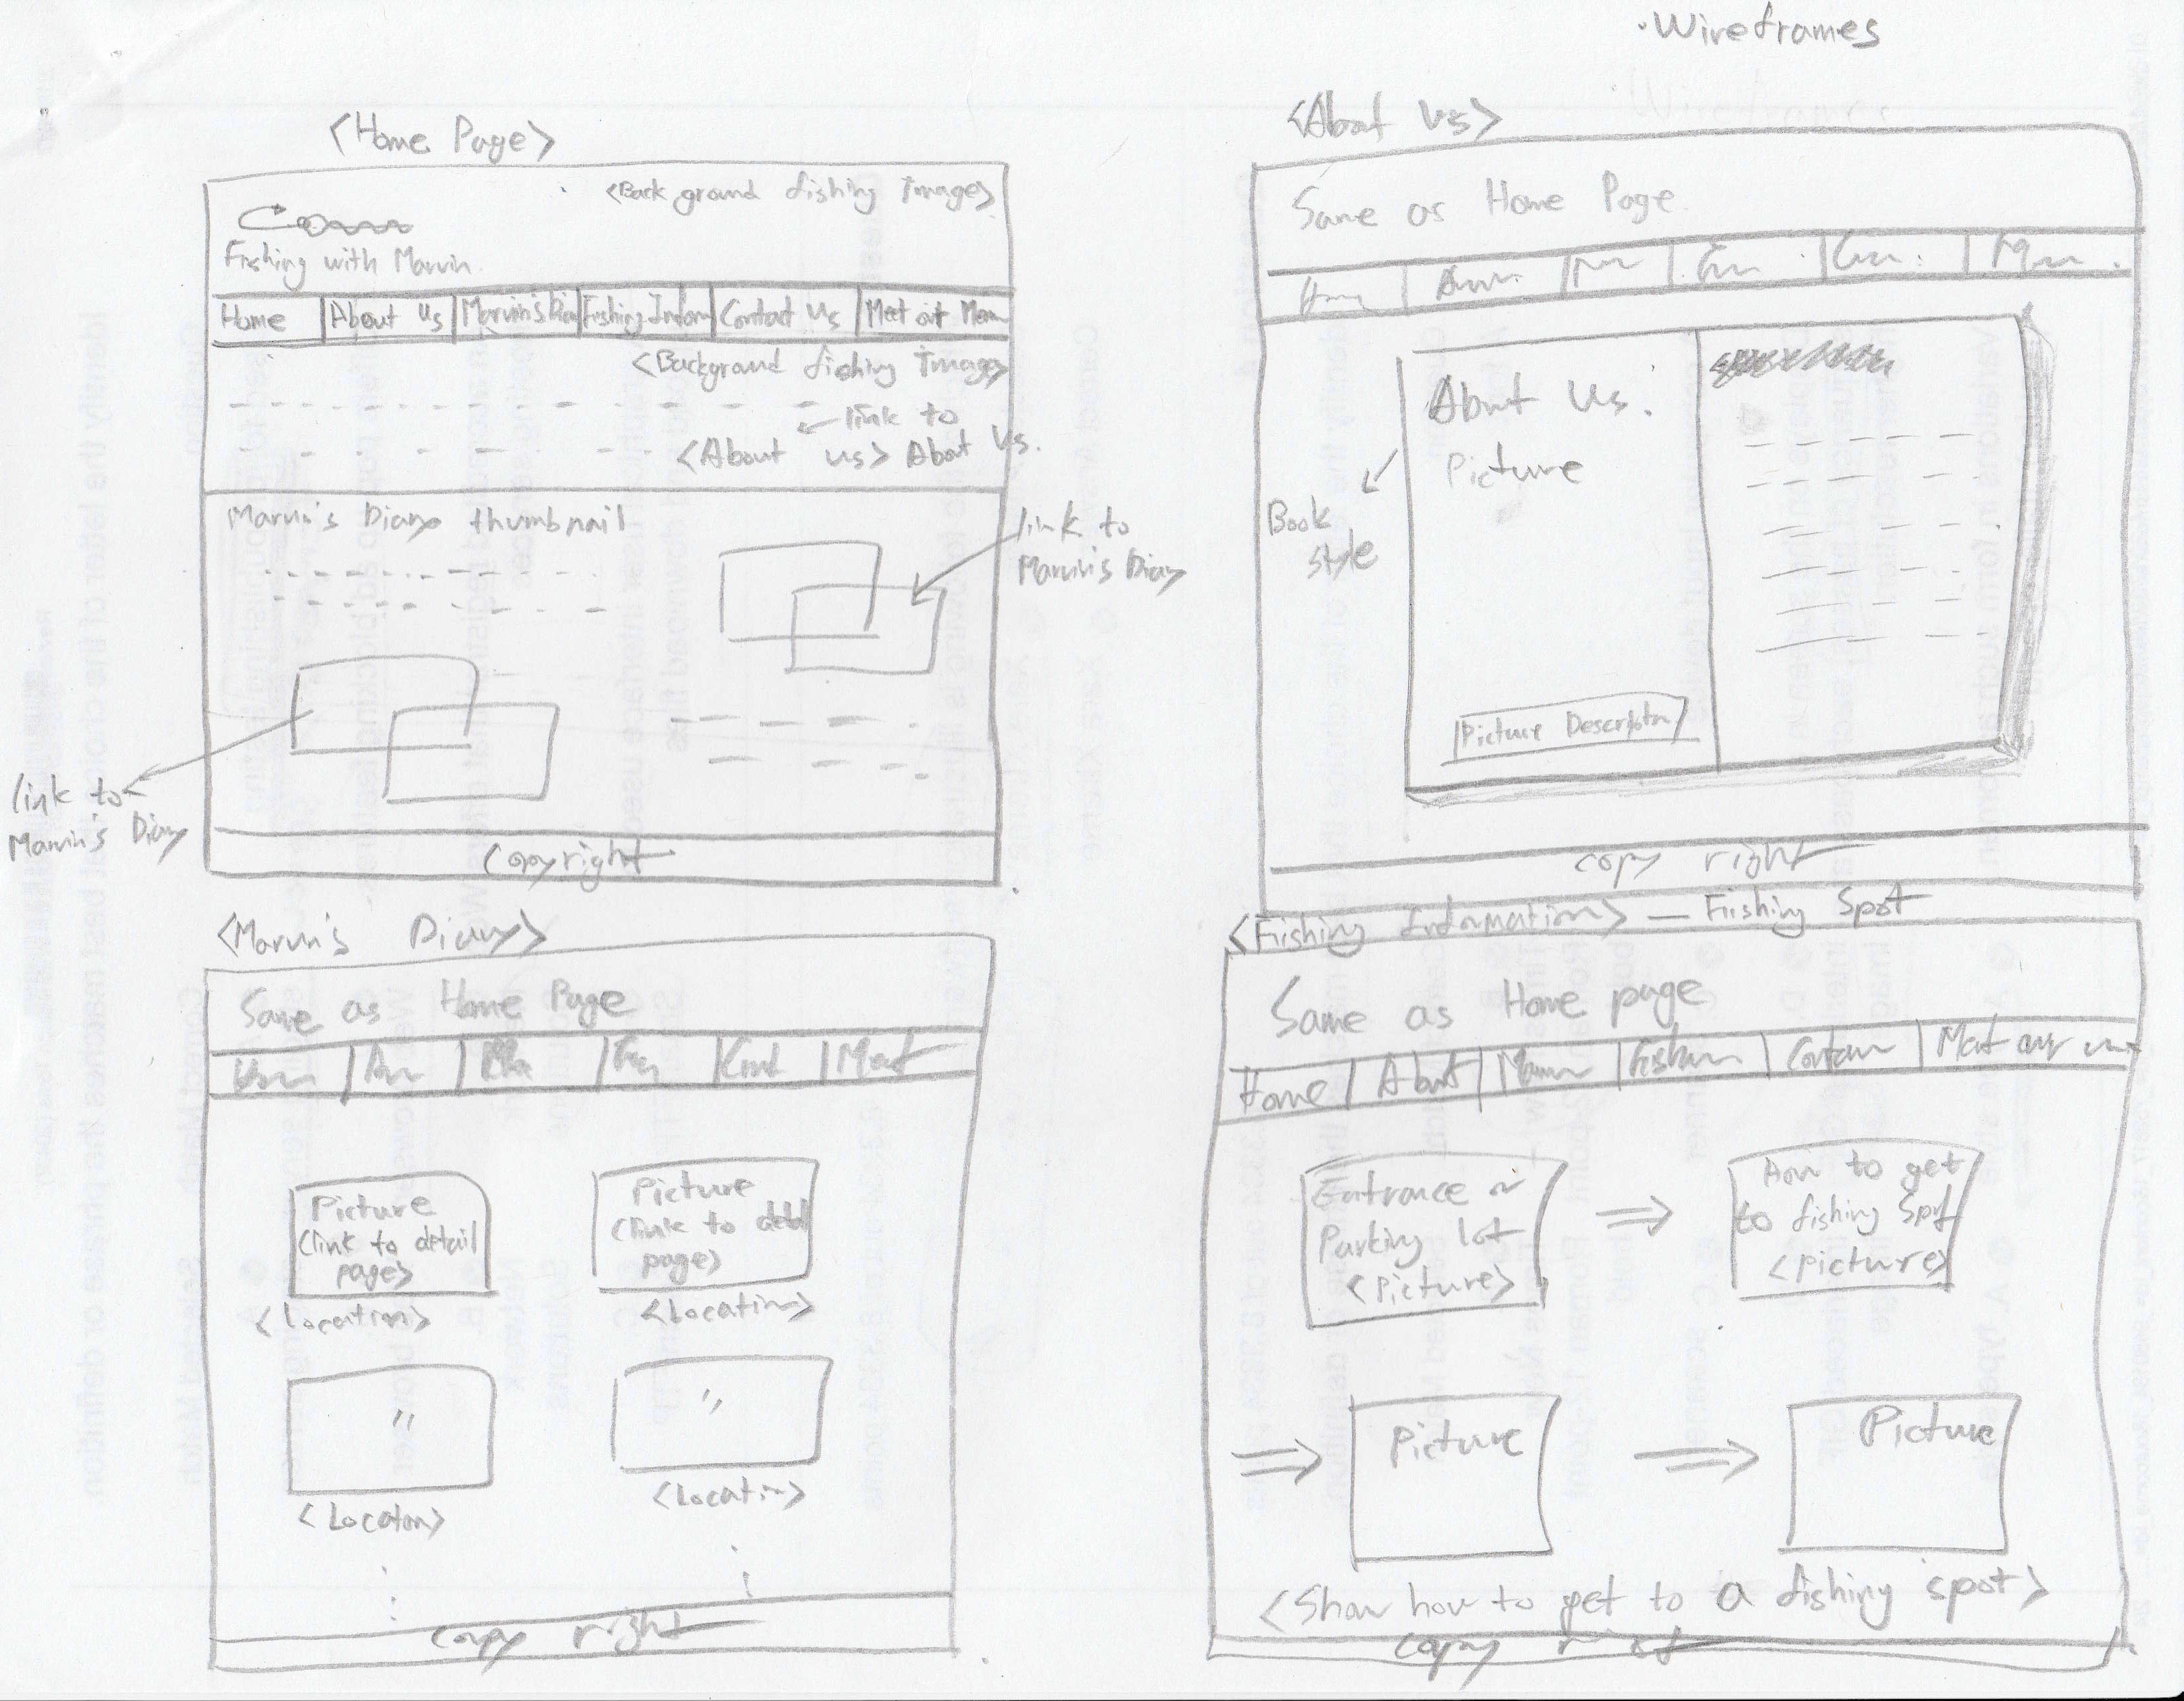 ·Wireframes
<Home Page>
<Back ground fishing Images>
Fishing with Marvin
Home | About Us | Marvin's Dia | Fishing Inform | Contact Us | Meet out Mem
<Background fishing Images>
link to
<About us> About Us.
Marvin's Diary thumbnail
link to
Marvin's Diary
link to
Marvin's Diary
Copyright
<About Us>
Same as Home Page
About Us.
Picture
Book
style
Picture Description
copy right
<Marvin's Diary>
Same as Home Page
Picture
<link to detail
page>
<Location>
Picture
<link to detail
page>
<Location>
"
<Location>
"
<Location>
copy right
<Fishing Information> — Fishing Spot
Same as Home page
Home | About
Entrance or
Parking lot
<Picture>
How to get
to fishing spot
<picture>
Picture
Picture
<Show how to get to a fishing spot>
copy right